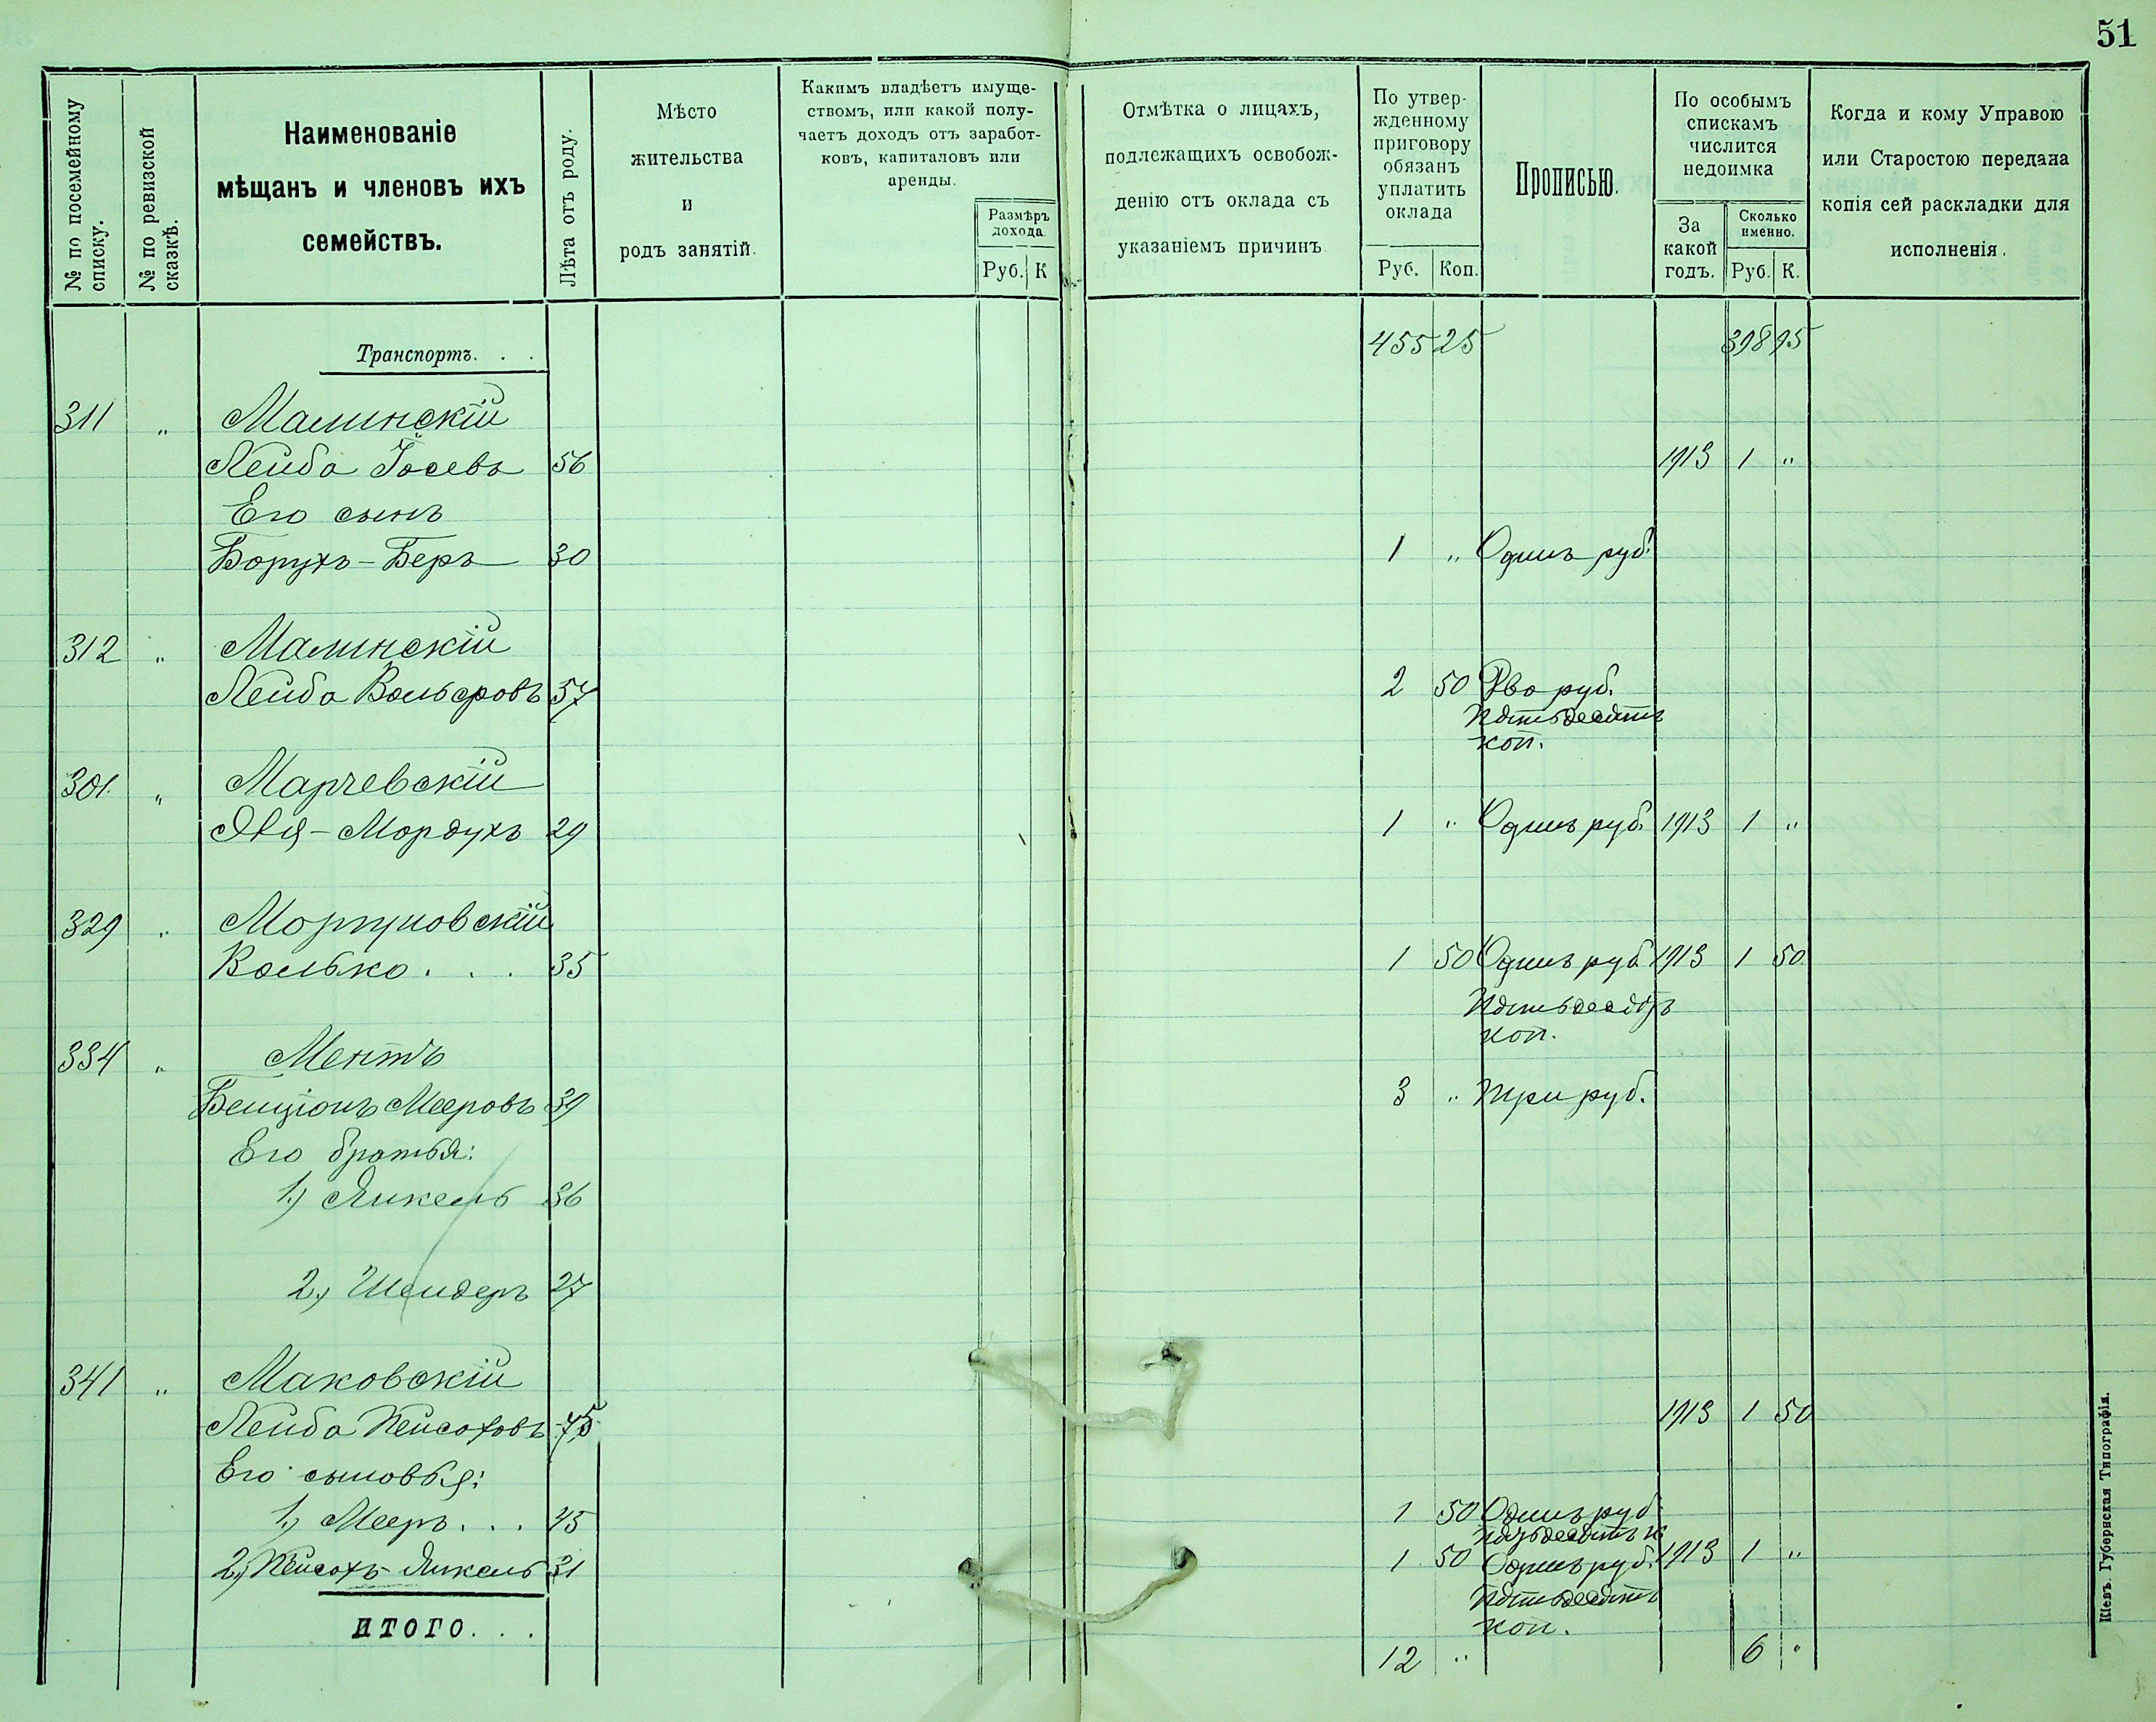 51
№ по посемейному списку.
№ по ревизской сказкѣ.
Наименованіе
мѣщанъ и членовъ ихъ
семействъ.
Лѣта отъ роду.
Мѣсто
жительства
и
родъ занятій.
Какимъ владѣетъ имуще-
ствомъ, или какой полу-
чаетъ доходъ отъ заработ-
ковъ, капиталовъ или
аренды.
Размѣръ
дохода.
Руб. К
Отмѣтка о лицахъ,
подлежащихъ освобож-
денію отъ оклада съ
указаніемъ причинъ
По утвер-
жденному
приговору
обязанъ
уплатить
оклада
Руб. Коп.
Прописью.
По особымъ
спискамъ
числится
недоимка
За
какой
годъ.
Сколько
именно.
Руб. К.
Когда и кому Управою
или Старостою передана
копія сей раскладки для
исполненія.
Транспортъ. . . 455 25 398 95
311 „ Малинскій
Лейба Іосевъ 56 1913 1 „
Его сынъ
Борухъ-Беръ 30 1 „ Одинъ руб.
312 „ Малинскій
Лейба Вольфовъ 57 2 50 Два руб.
пятьдесятъ
коп.
301. „ Марчевскій
Мордухъ 29 1 „ Одинъ руб. 1913 1 „
329 „ Моргуновскій
Волько . . . 35 1 50 Одинъ руб. 1913 1 50
пятьдесятъ
коп.
334 „ Ментъ
Бенціонъ Мееровъ 39 3 „ три руб.
Его братья:
1.) Янкель 36
2.) Шендеръ 27
341 „ Маковскій
Лейба Пейсаховъ 75 1913 1 50
Его сыновья:
1.) Мееръ . . . 45 1 50 Одинъ руб.
пятьдесятъ к
2.) Пейсахъ-Янкель 31 1 50 Одинъ руб. 1913 1 „
пятьдесятъ
коп.
ИТОГО. . . 12 „ 6 „
Кіевъ. Губернская Типографія.